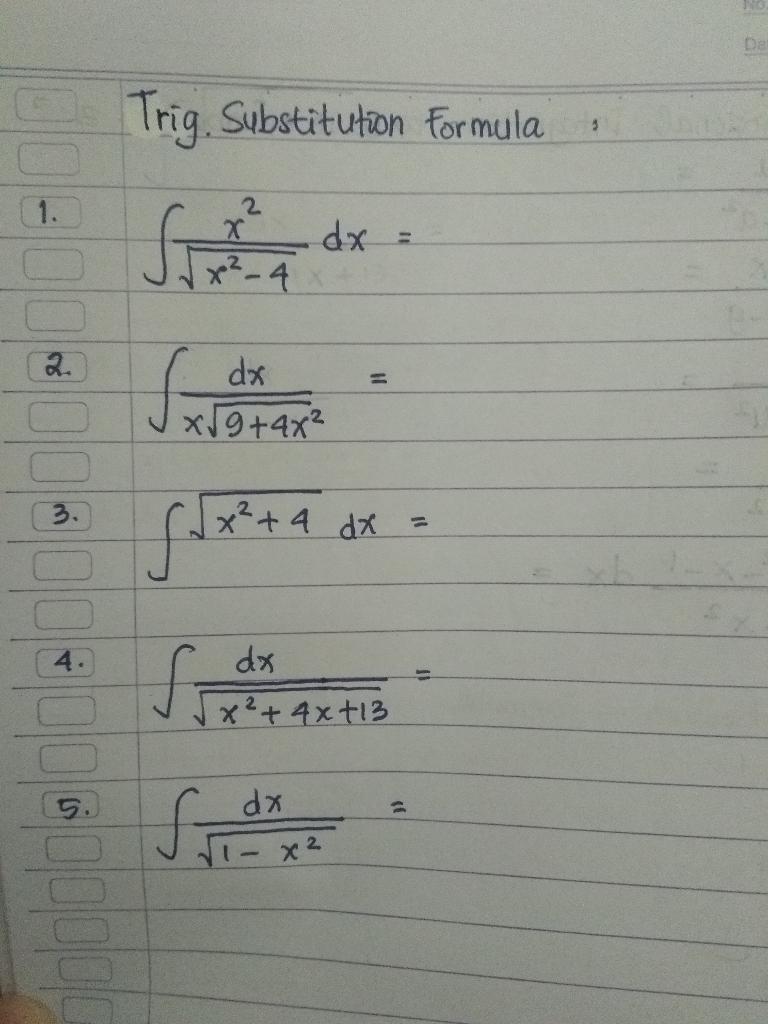 No.
Trig. Substitution Formula :
1. ∫ x²/√(x²-4) dx =
2. ∫ dx/(x√(9+4x²)) =
3. ∫ √(x²+4) dx =
4. ∫ dx/√(x²+4x+13) =
5. ∫ dx/√(1-x²) =